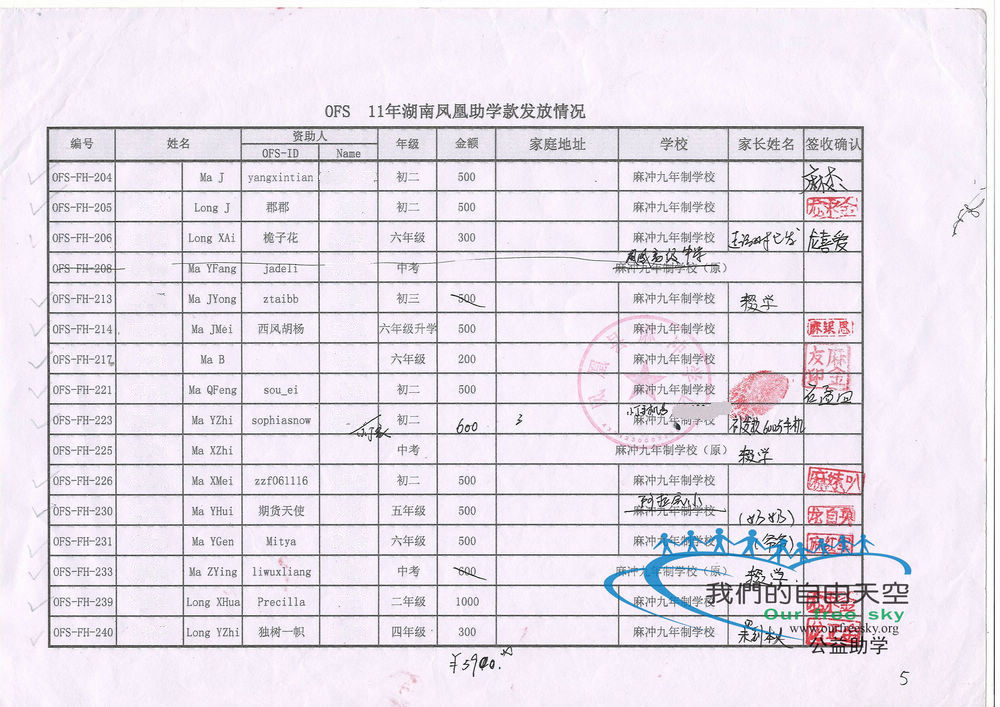 OFS 11年湖南凤凰助学款发放情况
编号 姓名 资助人 年级 金额 家庭地址 学校 家长姓名 签收确认
OFS-ID Name
OFS-FH-204 Ma J yangxintian 初二 500 麻冲九年制学校
OFS-FH-205 Long J 郡郡 初二 500 麻冲九年制学校
OFS-FH-206 Long XAi 桅子花 六年级 300 麻冲九年制学校 龙喜爱
OFS-FH-208 Ma YFang jadeli 中考 麻冲九年制学校(原)
OFS-FH-213 Ma JYong ztaibb 初三 500 麻冲九年制学校 辍学
OFS-FH-214 Ma JMei 西风胡杨 六年级升学 500 麻冲九年制学校
OFS-FH-217 Ma B 六年级 200 麻冲九年制学校
OFS-FH-221 Ma QFeng sou_ei 初二 500 麻冲九年制学校
OFS-FH-223 Ma YZhi sophiasnow 初二 600 麻冲九年制学校
OFS-FH-225 Ma XZhi 中考 麻冲九年制学校(原) 辍学
OFS-FH-226 Ma XMei zzf061116 初二 500 麻冲九年制学校
OFS-FH-230 Ma YHui 期货天使 五年级 500 麻冲九年制学校 (奶奶)
OFS-FH-231 Ma YGen Mitya 六年级 500 麻冲九年制学校
OFS-FH-233 Ma ZYing liwuxliang 中考 600 麻冲九年制学校(原) 辍学
OFS-FH-239 Long XHua Precilla 二年级 1000 麻冲九年制学校
OFS-FH-240 Long YZhi 独树一帜 四年级 300 麻冲九年制学校
我們的自由天空
Our free sky
www.ourfreesky.org
公益助学
5